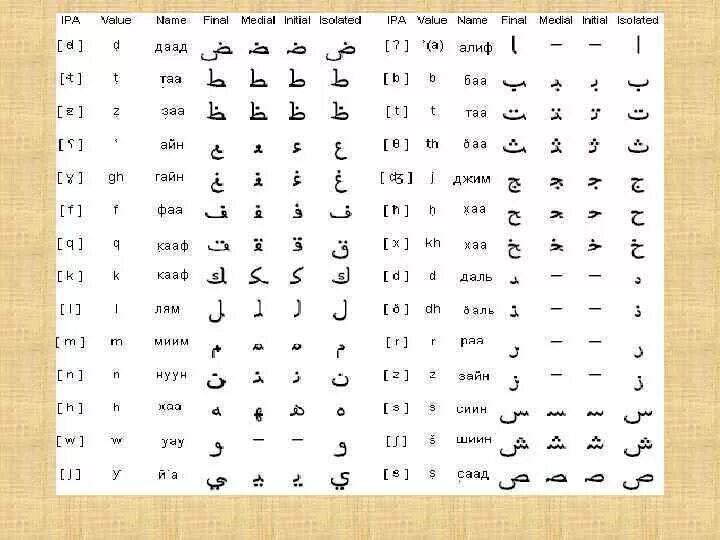 IPA Value Name Final Medial Initial Isolated IPA Value Name Final Medial Initial Isolated
[ḍ] ḍ даад ـض ـضـ ضـ ض [ʔ] ʾ(a) алиф ـا — — ا
[ṭ] ṭ таа ـط ـطـ طـ ط [b] b баа ـب ـبـ بـ ب
[ẓ] ẓ заа ـظ ـظـ ظـ ظ [t] t таа ـت ـتـ تـ ت
[ʕ] ʿ айн ـع ـعـ عـ ع [θ] th ðаа ـث ـثـ ثـ ث
[ɣ] gh гайн ـغ ـغـ غـ غ [ʤ] j джим ـج ـجـ جـ ج
[f] f фаа ـف ـفـ فـ ف [ħ] ḥ хаа ـح ـحـ حـ ح
[q] q кааф ـق ـقـ قـ ق [x] kh хаа ـخ ـخـ خـ خ
[k] k кааф ـك ـكـ كـ ك [d] d даль ـد — — د
[l] l лям ـل ـلـ لـ ل [ð] dh ðаль ـذ — — ذ
[m] m миим ـم ـمـ مـ م [r] r раа ـر — — ر
[n] n нуун ـن ـنـ نـ ن [z] z зайн ـز — — ز
[h] h хаа ـه ـهـ هـ ه [s] s сиин ـس ـسـ سـ س
[w] w уау ـو — — و [ʃ] š шиин ـش ـشـ شـ ش
[j] y й'а ـي ـيـ يـ ي [ṣ] ṣ саад ـص ـصـ صـ ص